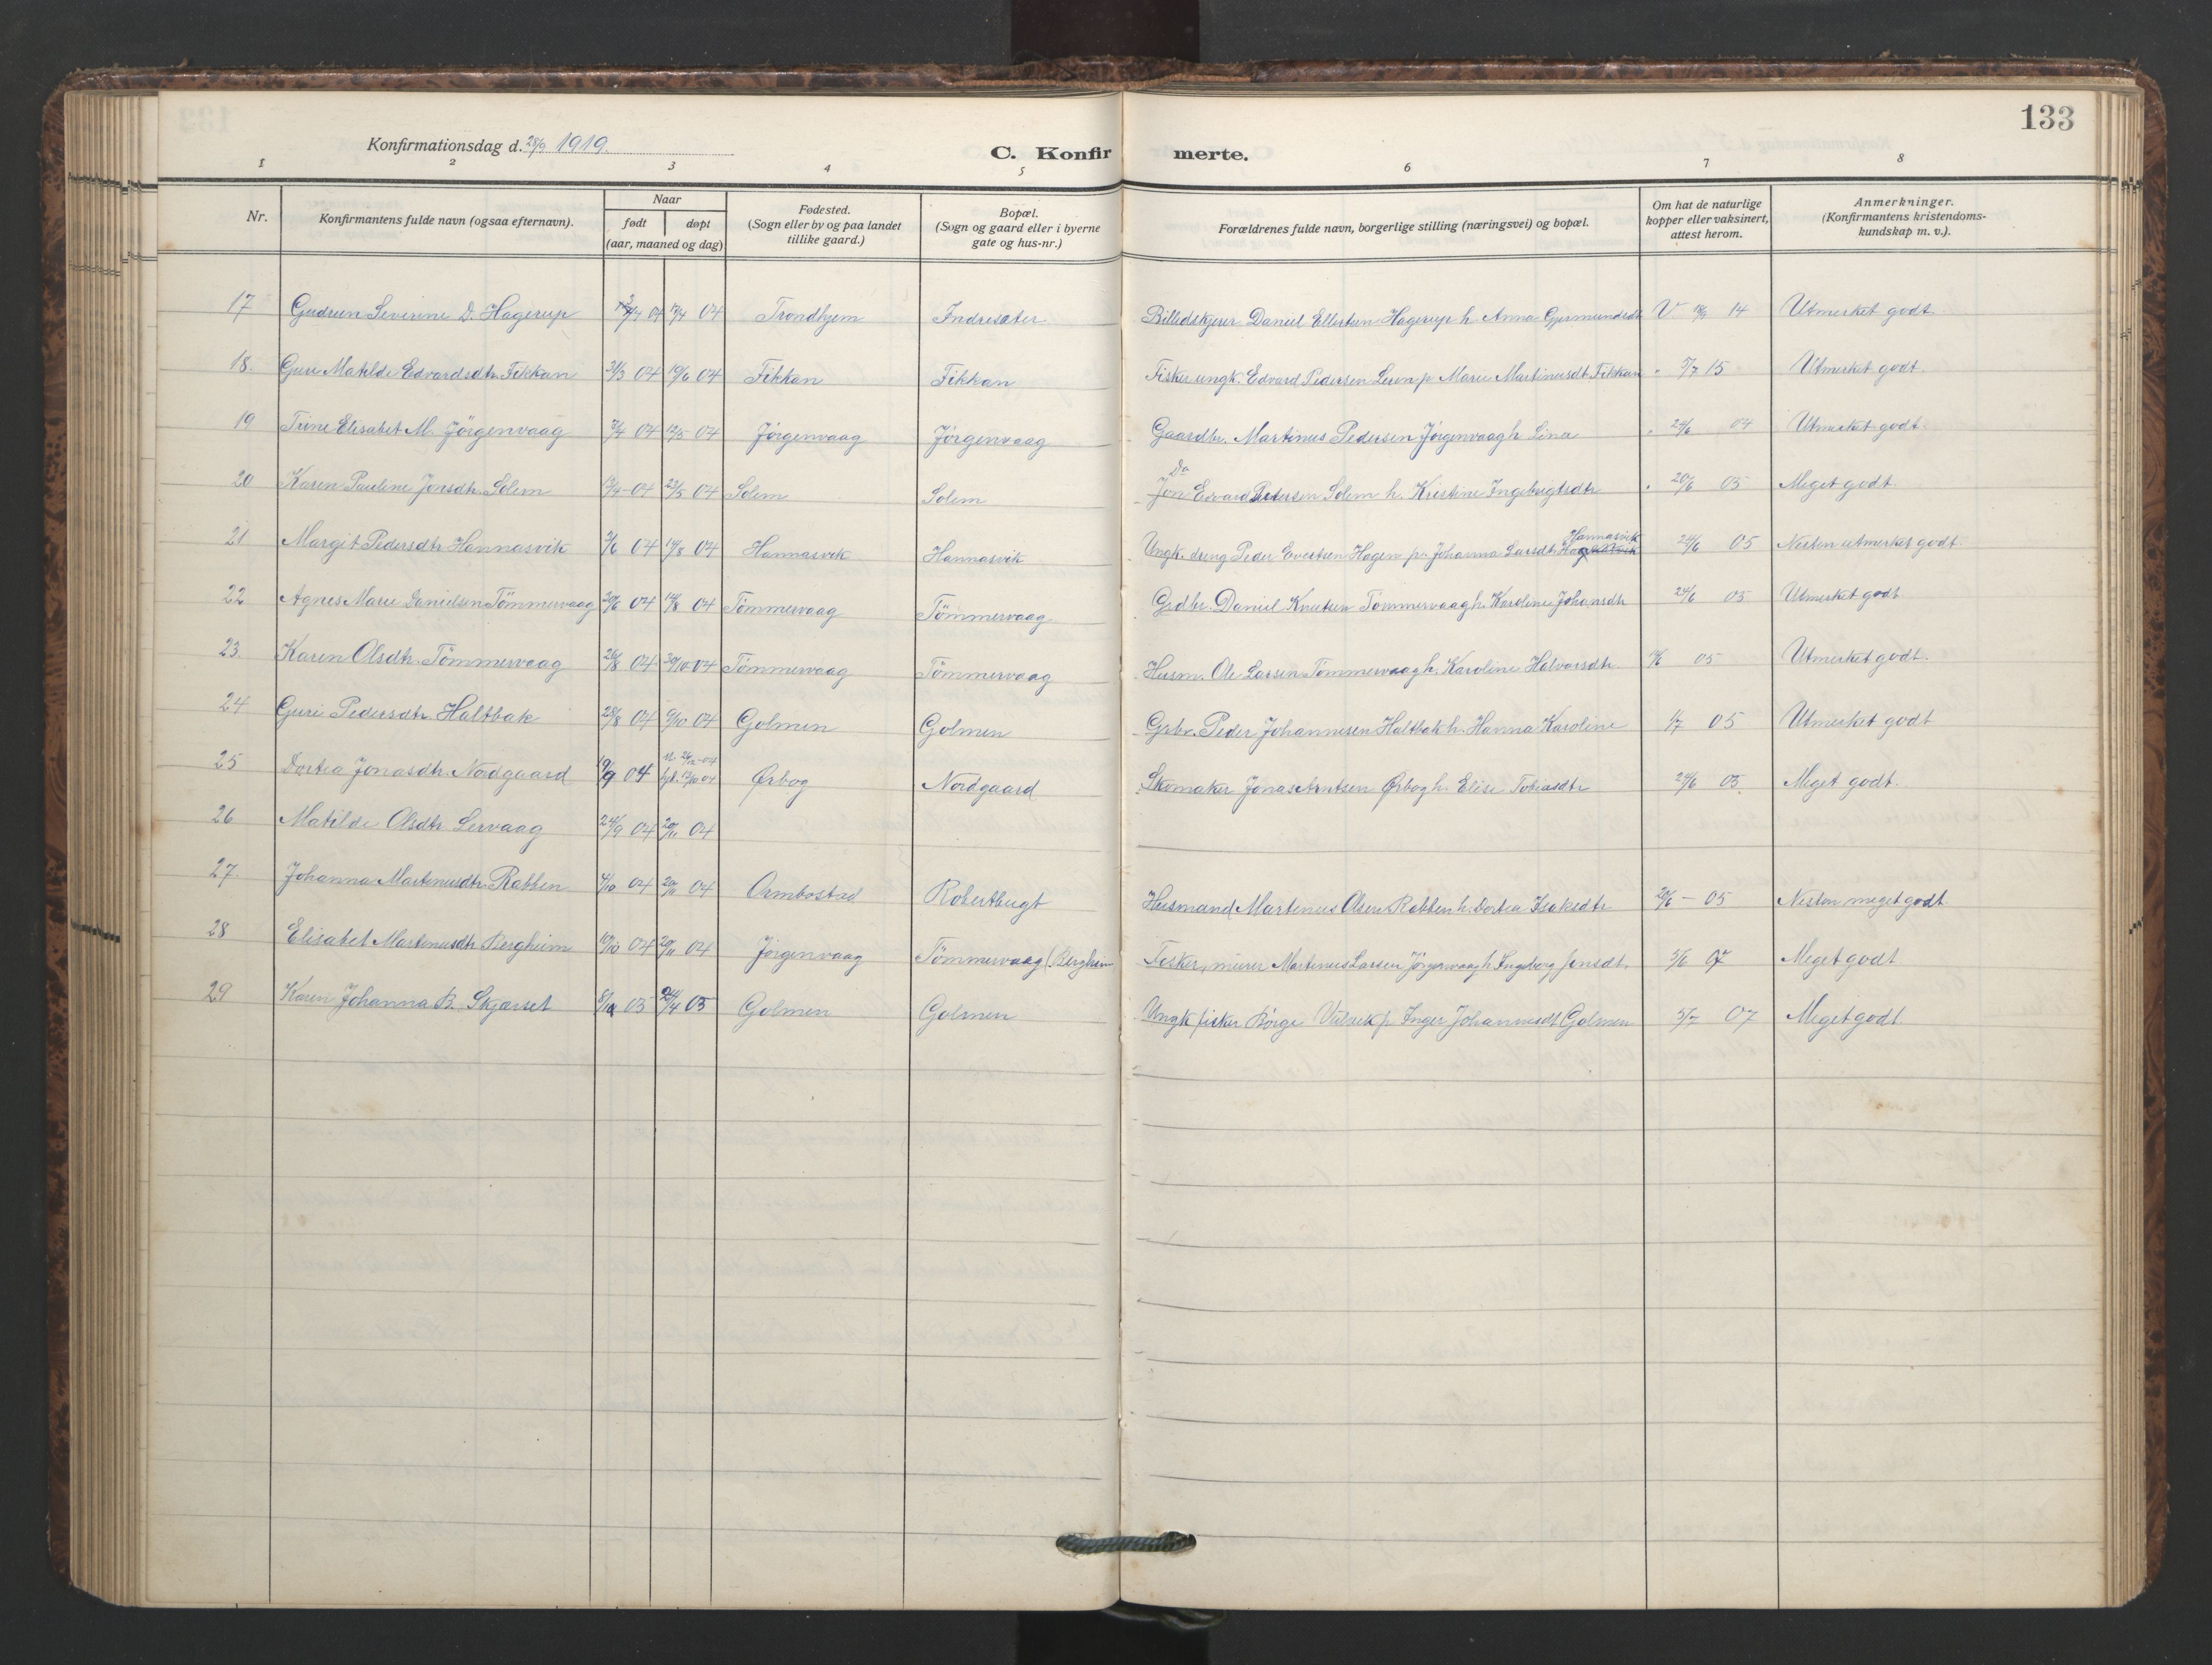 133
Konfirmationsdag d. 28/9 1919.
C. Konfirmerte.
1 2 3 4 5 6 7 8
Nr.
Konfirmantens fulde navn (ogsaa efternavn).
Naar
født døpt
(aar, maaned og dag)
Fødested.
(Sogn eller by og paa landet
tillike gaard.)
Bopæl.
(Sogn og gaard eller i byerne
gate og hus-nr.)
Forældrenes fulde navn, borgerlige stilling (næringsvei) og bopæl.
Om hat de naturlige
kopper eller vaksinert,
attest herom.
Anmerkninger.
(Konfirmantens kristendoms-
kundskap m. v.).
17 Gudrun Severine D. Hagerup 04 17/4 04 Trondhjem Indresæter Billedskjærer Daniel Ellertsen Hagerup h. Anna Gjermundsdt V 14 Utmerket godt.
18. Guri Matilde Edvardsdtr. Fikkan 31/3 04 19/6 04 Fikkan Fikkan Fisker ungk. Edvard Pedersen Lerem p. Marie Martinusdt. Fikkan " 5/7 15 Utmerket godt.
19 Trine Elisabet M. Jörgenvaag 04 12/5 04 Jörgenvaag Jörgenvaag Gaardbr. Martinus Pedersen Jörgenvaag h. Lina " 24/6 04 Utmerket godt.
20 Karen Pauline Jonsdtr. Solem 13/4-04 23/5 04 Solem Solem Do Jon Edvard Pedersen Solem h. Kristine Ingebrigtsdtr " 20/6 05 Meget godt.
21 Margit Pedersdtr Hannasvik 3/6 04 14/8 04 Hannasvik Hannasvik Ungk. dreng Peder Evertsen Hagen p. Johanna Larsdtr. Hannasvik 24/6 05 Nesten utmerket godt.
22 Agnes Marie Danielsen Tömmervaag 20/6 04 14/8 04 Tömmervaag Tömmervaag Grdbr. Daniel Knutsen Tömmervaag h. Karoline Johansdtr 24/6 05 Utmerket godt
23. Karen Olsdtr. Tömmervaag 26/8 04 30/10-04 Tömmervaag Tömmervaag Husm. Ole Larsen Tömmervaag h. Karoline Halvorsdtr. 05 Utmerket godt.
24 Guri Pedersdtr. Haltbak 28/8 04 9/10 04 Golmen Golmen Grbr. Peder Johannesen Haltbak h. Hanna Karoline 1/7 05 Utmerket godt
25 Dortea Jonasdtr. Nordgaard 19/9 04 04 04 Ørbog Nordgaard Skomaker Jonas Arntsen Ørbog h. Elise Tobiasdtr 24/6 05 Meget godt.
26 Matilde Olsdtr Lervaag 24/9 04 20/11 04
27. Johanna Martinusdtr. Rabben 4/10 04 20/11 04 Ormbostad Robertbugt Husmand Martinus Olsen Rabben h. Dortea Isaksdtr 20/6 - 05 Nesten meget godt.
28 Elisabet Martinusdtr Bergheim 10/10 04 20/11 04 Jörgenvaag Tömmervaag (Bergheim Fisker, murer Martinus Larsen Jörgenvaag h. Ingeborg Jonsdt. 3/6 07 Meget godt
29 Karen Johanna B. Skjærset 05 24/4 05 Golmen Golmen Ungk fisker Börge p. Inger Johannesdt Golmen 5/7 07 Meget godt